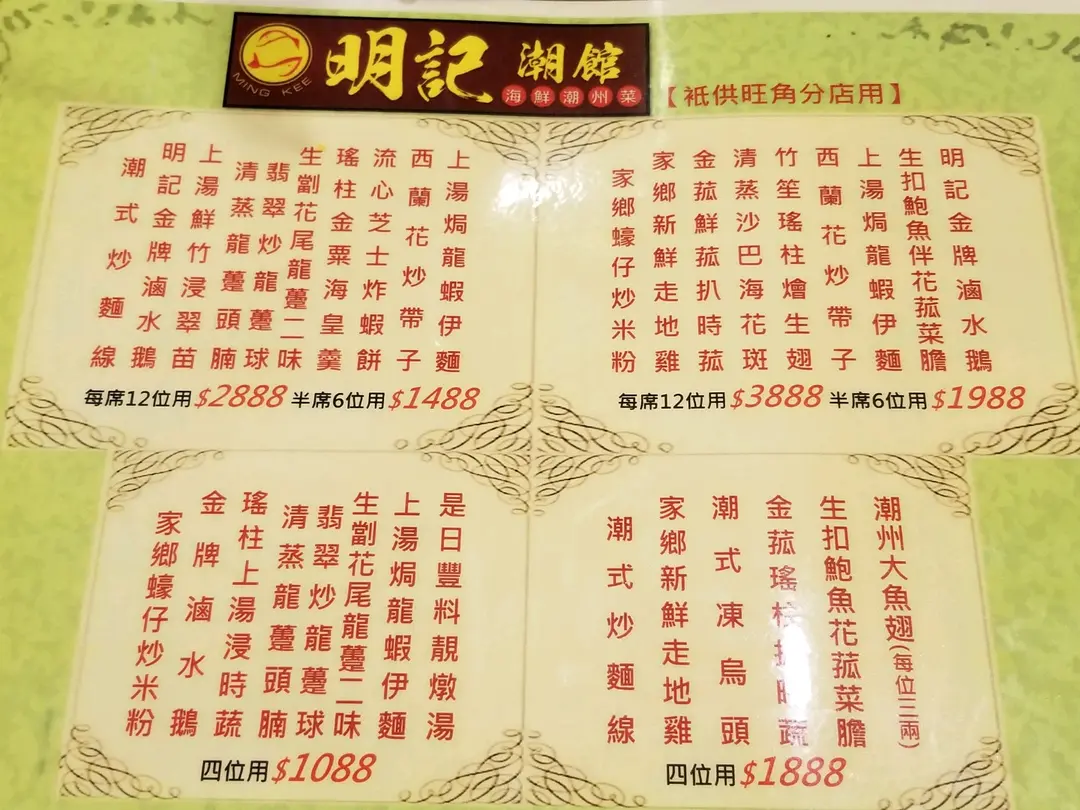 明記潮館
海鮮潮州菜
MING KEE
【祇供旺角分店用】
上湯焗龍蝦伊麵
西蘭花炒帶子
流心芝士炸蝦餅
瑤柱金粟海皇羹
生劏花尾龍躉二味
翡翠炒龍躉球
清蒸龍躉頭腩
上湯鮮竹浸翠苗
明記金牌滷水鵝
潮式炒麵線
每席12位用$2888 半席6位用$1488
明記金牌滷水鵝
生扣鮑魚伴花菰菜膽
上湯焗龍蝦伊麵
西蘭花炒帶子
竹笙瑤柱燴生翅
清蒸沙巴海花斑
金菰鮮菰扒時菰
家鄉新鮮走地雞
家鄉蠔仔炒米粉
每席12位用$3888 半席6位用$1988
是日豐料靚燉湯
上湯焗龍蝦伊麵
生劏花尾龍躉二味
翡翠炒龍躉球
清蒸龍躉頭腩
瑤柱上湯浸時蔬
金牌滷水鵝
家鄉蠔仔炒米粉
四位用$1088
潮州大魚翅(每位二兩)
生扣鮑魚花菰菜膽
金菰瑤柱扒時蔬
潮式凍烏頭
家鄉新鮮走地雞
潮式炒麵線
四位用$1888